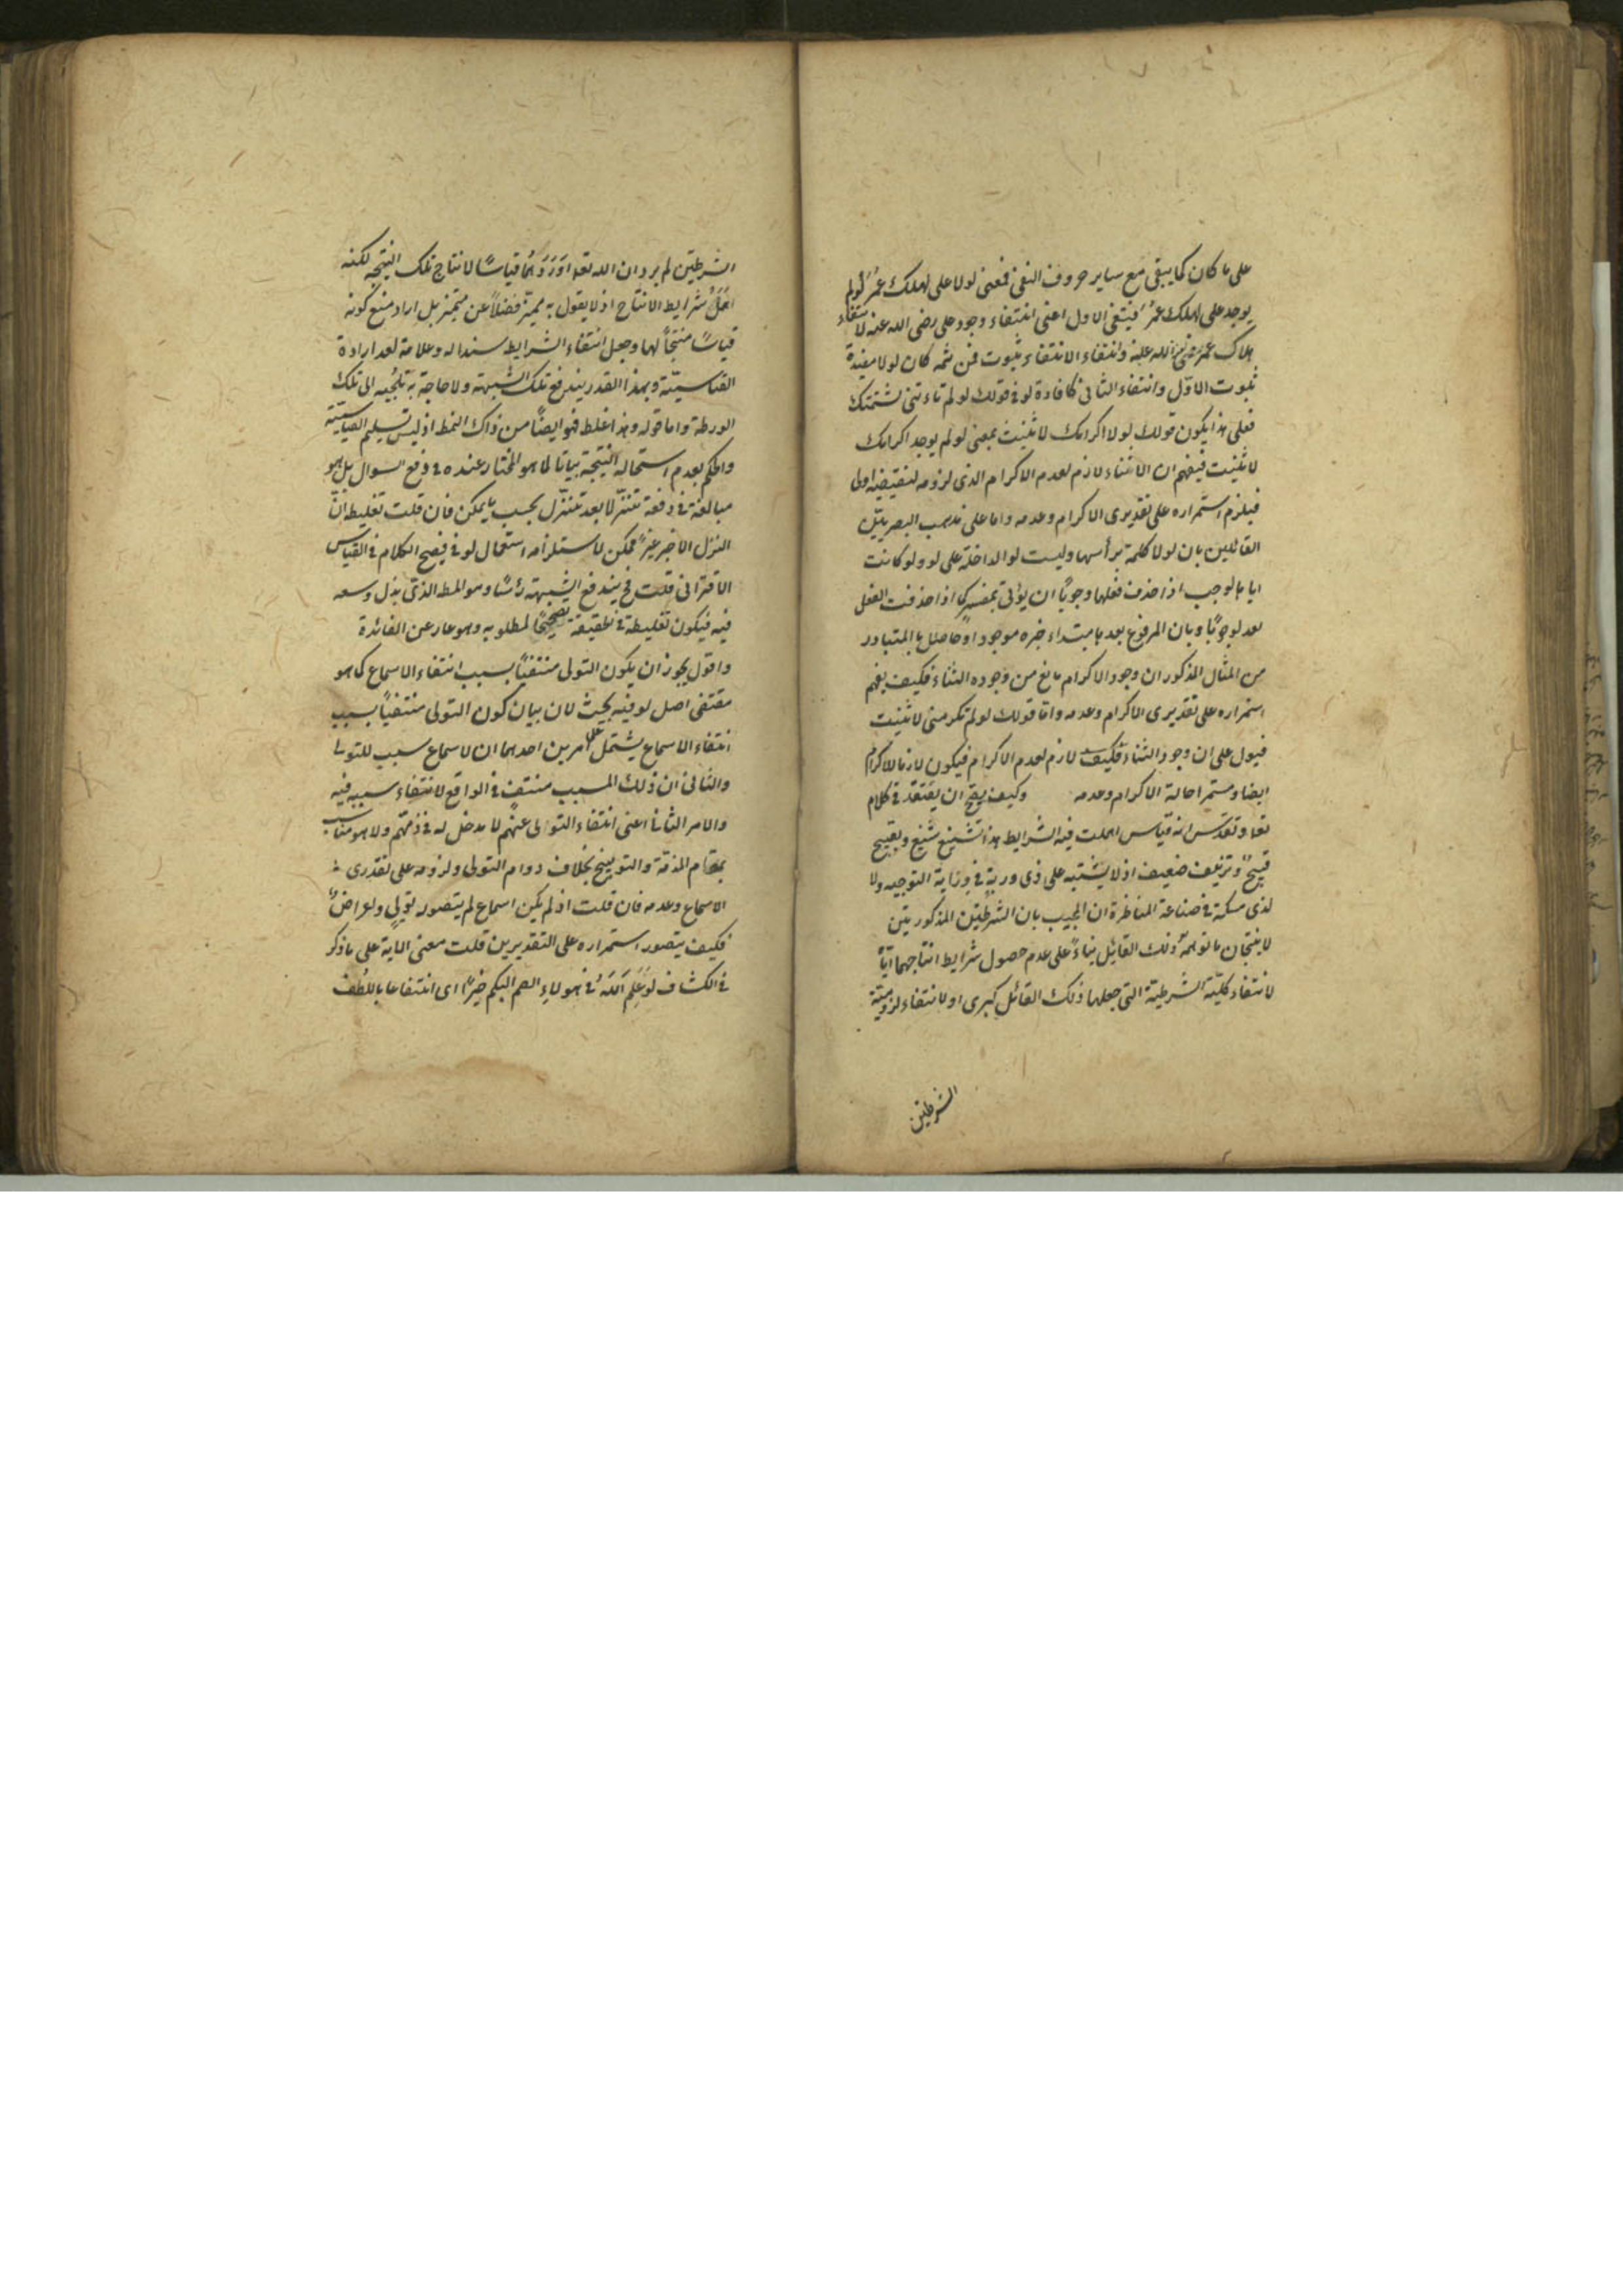 على ما كان كما يبقى مع ساير حروف النفى فمعنى لولا على لهلك عمر لو لم
يوجد على لهلك عمر فينتفى الاول اعنى انتفاء وجود على رضى الله عنه لانتفاء
هلاك عمر رضى الله عنه وانتفاء الانتفاء ثبوت فمن ثمه كان لولا مفيدة
ثبوت الاول وانتفاء الثانى كافادة لو فى قولك لو لم تاءتنى لشتمتك
فعلى هذا يكون قولك لولا اكرامك لاثنيت بمعنى لو لم يوجد اكرامك
لاثنيت فيفهم ان الاثناء لازم لعدم الاكرام الذى لزومه لنقيضه اولى
فيلزم استمراره على تقديرى الاكرام وعدمه واما على مذهب البصريين
القائلين بان لولا كلمة برأسها وليست لو الداخلة على لا ولو كانت
اياها لوجب اذا حذف فعلها وجوبًا ان يؤتى بمفسر كما اذا حذفت الفعل
بعد لو وجوبًا وبان المرفوع بعدها مبتداء خبره موجود او حاصل فالمتبادر
من المثال المذكور ان وجود الاكرام مانع من وجوده الثناء فكيف يفهم
استمراره على تقديرى الاكرام وعدمه واما قولك لو لم تكرمنى لاثنيت
فيدل على ان وجود الثناء لازم لعدم الاكرام فيكون لازما للاكرام
ايضا ومستمرا حالة الاكرام وعدمه وكيف يصح ان يعتقد فى كلام
تعا وتقدس انه قياس اهملت فيه الشرايط هذا تشنيع شنيع وتقبيح
قبيح وتزييف ضعيف اذ لا يشتبه على ذى دربة فى دراية التوجيه ولا
لذى مسكة فى صناعة المناظرة ان المجيب بان الشرطيتين المذكورتين
لا ينتجان ما توهمه ذلك القائل بناءً على عدم حصول شرايط انتاجهما اياه
لانتفاء كلية الشرطية التى جعلها ذلك القائل كبرى او لانتفاء لزومية
الشرطيتين
الشرطيتين لم يرد ان الله تعا اوردهما قياسًا لانتاج تلك النتيجه لكنه
اهمل شرايط الانتاج اذ لا يقول به مميز فضلاً عن متميز بل اراد منع كونه
قياسًا منتجًا لها وجعل انتفاء الشرايط سندا له وعلامة لعد ارادة
القياسية وبهذا القدر يندفع تلك الشبهة ولا حاجة به تلجئه الى تلك
الورطة واما قوله وهذا غلط فهو ايضًا من ذاك النمط اذ ليس تسليم القياسية
والحكم بعدم استحالة النتيجة بيانا لما هو المختار عنده فى دفع السوال بل هو
مبالغة فى دفعه تنزلا بعد تنزل بحسب ما يمكن فان قلت تغليطه ان
التنزل الاخير غير ممكن لاستلزامه استعمال لو فى فصيح الكلام فى القياس
الاقترانى قلت فح يندفع الشبهة رئسًا وهو المط الذى بذل وسعه
فيه فيكون تغليطه فى الحقيقة تصحيحًا لمطلوبه وهو عار عن الفائدة
واقول يجوز ان يكون التولى منتفيًا بسبب انتفاء الاسماع كما هو
مقتضى اصل لو فيه بحث لان بيان كون التولى منتفيًا بسبب
انتفاء الاسماع يشتمل على امرين احدهما ان الاسماع سبب للتولى
والثانى ان ذلك المسبب منتف فى الواقع لانتفاء سببه فيه
والامر الثانى اعنى انتفاء التولى عنهم لا مدخل له فى ذمهم ولا هو مناسب
بمقام المذمة والتوبيخ بخلاف دوام التولى ولزومه على تقديرى
الاسماع وعدمه فان قلت اذ لم يكن اسماع لم يتصور تولٍ ولا عراض
فكيف يتصور استمراره على التقديرين قلت معنى الاية على ما ذكر
فى الكشاف لو علم الله فى هولاء الصم البكم خيرًا اى انتفاعا باللطف